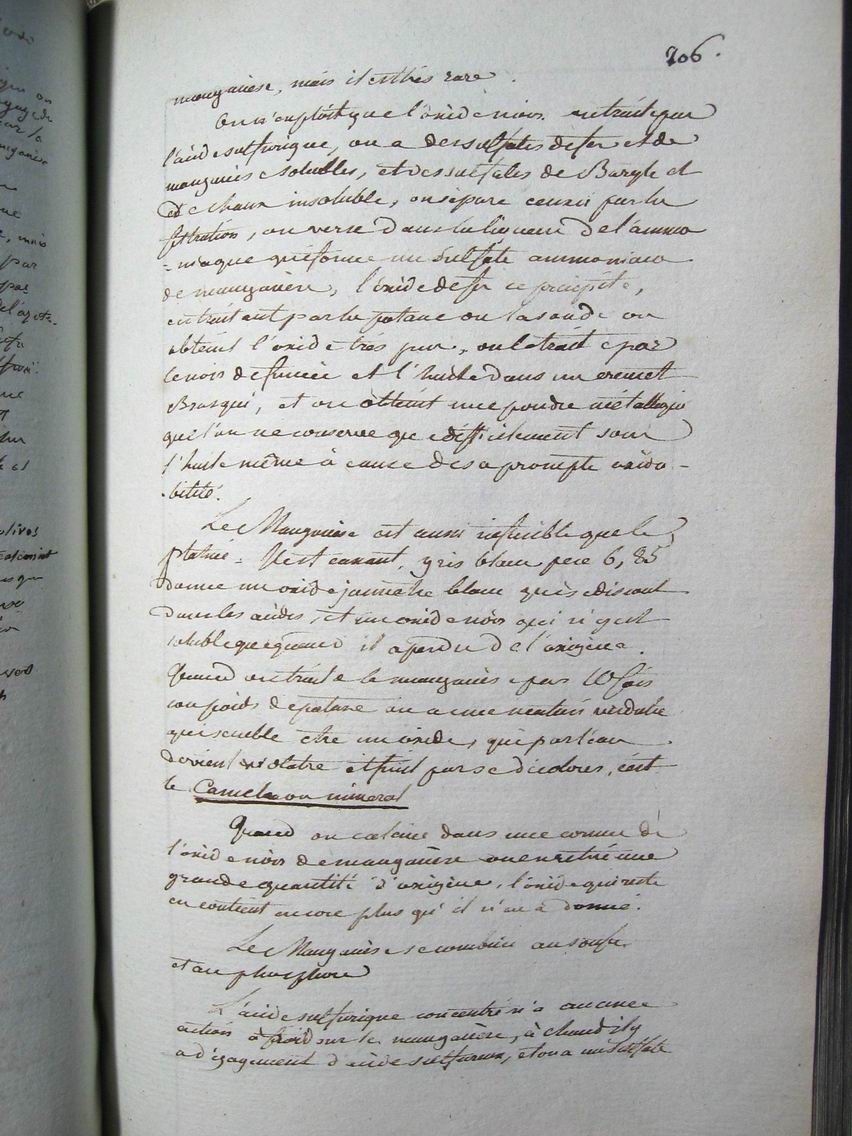 206.
manganèse, mais il est très rare.
On n'exploit que l'oxide noir. en traité par
l'acide sulfurique, on a des sulfates de fer et de
manganèse solubles, et des sulfates de Baryte et
de chaux insoluble, on sépare ceux ci par la
filtration, on verse dans la liqueur de l'ammo
= niaque qui forme un sulfate ammoniaco
de manganèse, l'oxide de fer se précipite,
en traitant par la potasse ou la soude on
obtient l'oxide très pur, on le traite par
le noir de fumée et l'huile dans un creuset
Brasqué, et on obtient une poudre métallique
que l'on ne conserve que difficilement sous
l'huile même à cause de sa prompte oxida-
bilité.
Le Manganèse est aussi infusible que le
platine. Il est cassant, gris blanc pese 6,85
donne un oxide jaunatre blanc qui se dissout
dans les acides, et un oxide noir qui n'est
soluble que quand il a perdu de l'oxigène.
Quand on traite le manganèse par 10 fois
son poids de potasse on a une matière verdatre
qui semble etre un oxide, qui par l'eau
devient violatre et finit par se décolorer, c'est
le Cameleon mineral
Quand on calcine dans une cornue de
l'oxide noir de manganèse on en retire une
grande quantité d'oxigène, l'oxide qui reste
en contient encore plus qu'il n'en a donné.
Le Manganèse se combine au soufre
et au phosphore
L'acide sulfurique concentré n'a aucune
action à froid sur le manganèse, à chaud il y
a dégagement d'acide sulfureux, et on a un sulfate